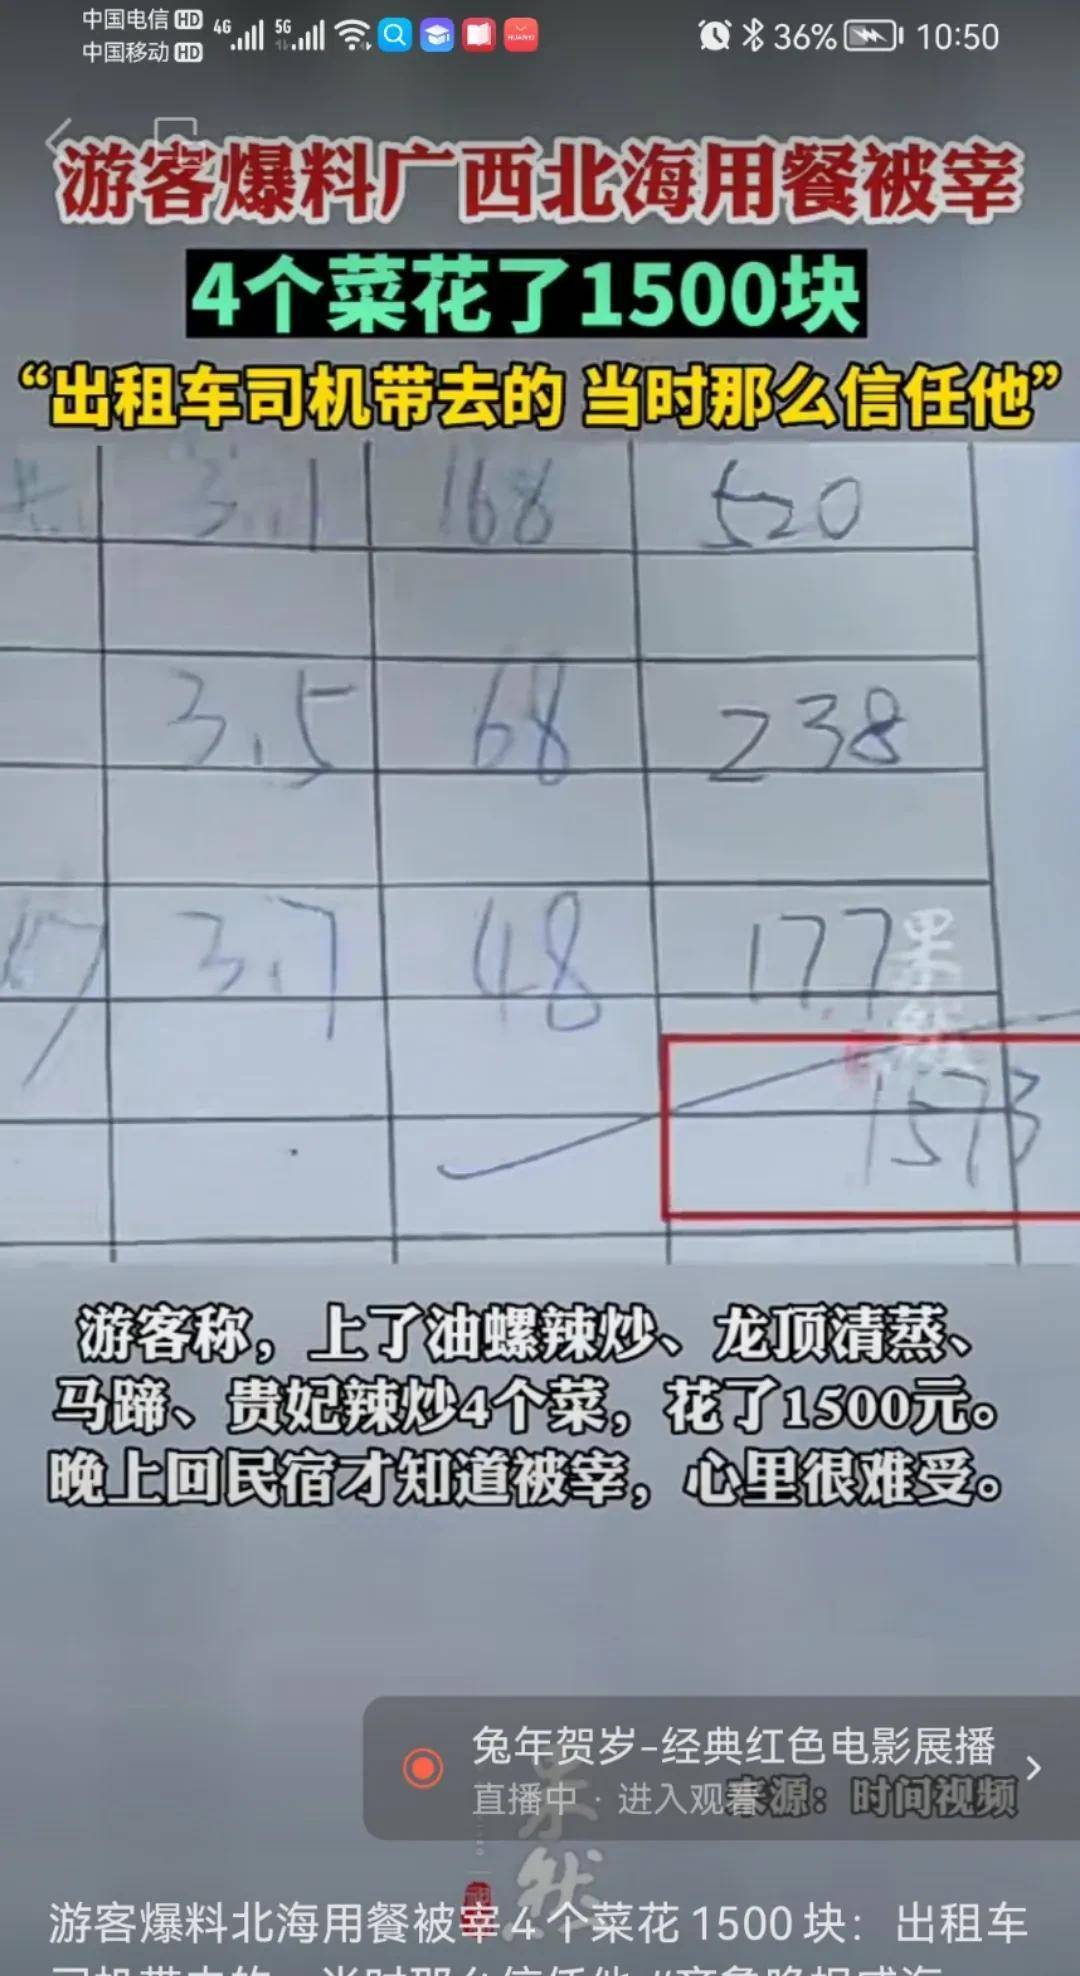 中国电信 HD
中国移动 HD
4G 5G
HUAWEI
36% 10:50
游客爆料广西北海用餐被宰
4个菜花了1500块
“出租车司机带去的 当时那么信任他”
3.1 168 520
3.5 68 238
3.7 48 177
果然
1573
游客称，上了油螺辣炒、龙顶清蒸、
马蹄、贵妃辣炒4个菜，花了1500元。
晚上回民宿才知道被宰，心里很难受。
兔年贺岁-经典红色电影展播
直播中 · 进入观看
来源：时间视频
果然
游客爆料北海用餐被宰4个菜花1500块：出租车
司机带去的 当时那么信任他